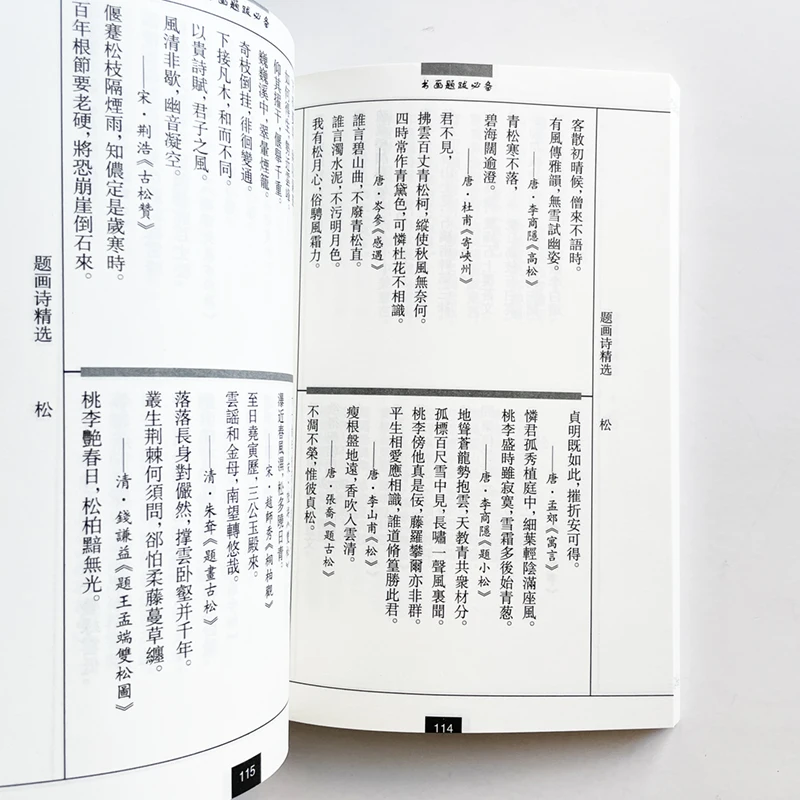 书画题跋必备
题画诗精选 松
客散初晴候，僧來不語時。
有風傳雅韻，無雪試幽姿。
——唐·李商隱《高松》
青松寒不落，
碧海闊逾澄。
——唐·杜甫《寄峽州》
君不見，
拂雲百丈青松柯，縱使秋風無奈何。
四時常作青黛色，可憐杜花不相識。
——唐·岑參《感遇》
誰言碧山曲，不廢青松直。
誰言濁水泥，不污明月色。
我有松月心，俗騁風霜力。
貞明既如此，摧折安可得。
——唐·孟郊《寓言》
憐君孤秀植庭中，細葉輕陰滿座風。
桃李盛時雖寂寞，雪霜多後始青葱。
——唐·李商隱《題小松》
地聳蒼龍勢抱雲，天教青共衆材分。
孤標百尺雪中見，長嘯一聲風裏聞。
桃李傍他真是佞，藤羅攀爾亦非群。
平生相愛應相識，誰道脩篁勝此君。
——唐·李山甫《松》
瘦根盤地遠，香吹入雲清。
——唐·張喬《題古松》
不凋不榮，惟彼貞松。
114
画题跋必备
仰其擢干，偃舉千重。
巍巍溪中，翠暈煙籠。
奇枝倒挂，徘徊變通。
下接凡木，和而不同。
以貴詩賦，君子之風。
風清非歇，幽音凝空。
——宋·荆浩《古松赞》
偃蹇松枝隔煙雨，知儂定是歲寒時。
百年根節要老硬，將恐崩崖倒石來。
澤近春風濕，松多曉日青。
——宋·趙師秀《桐柏觀》
至日堯寅歷，三公玉殿來。
雲謡和金母，南望轉悠哉。
——清·朱耷《題畫古松》
落落長身對儼然，撑雲卧壑并千年。
叢生荆棘何須問，郤怕柔藤蔓草纏。
——清·錢謙益《題王孟端雙松圖》
桃李艷春日，松柏黯無光。
题画诗精选 松
115